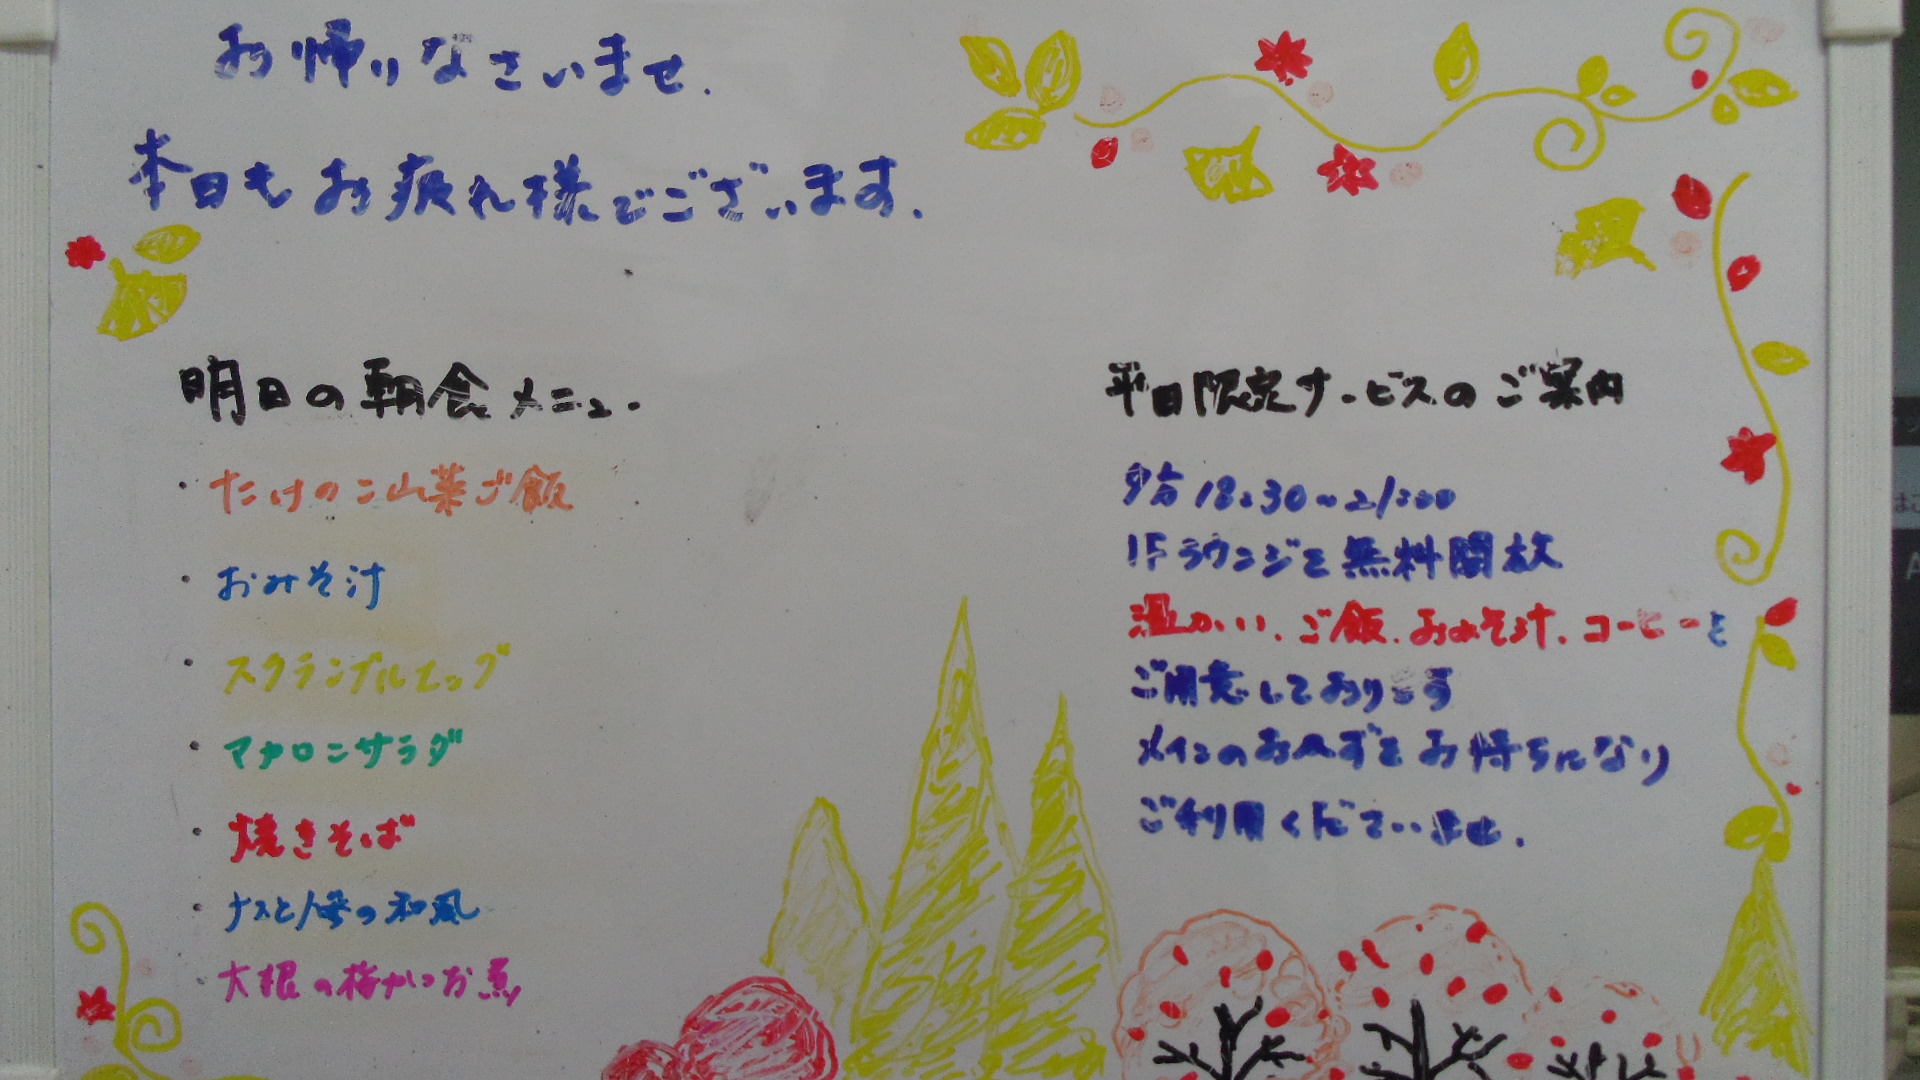 お帰りなさいませ.
本日もお疲れ様でございます.
明日の朝食メニュー.
・たけのこ山菜ご飯
・おみそ汁
・スクランブルエッグ
・マカロニサラダ
・焼きそば
・ナスと の和風
・大根の梅かつお煮
平日限定サービスのご案内
夕方18:30~21:00
1Fラウンジを無料開放
温かい、ご飯、おみそ汁、コーヒーを
ご用意しております
メインのおかずをお持ちになり
ご利用くださいませ.